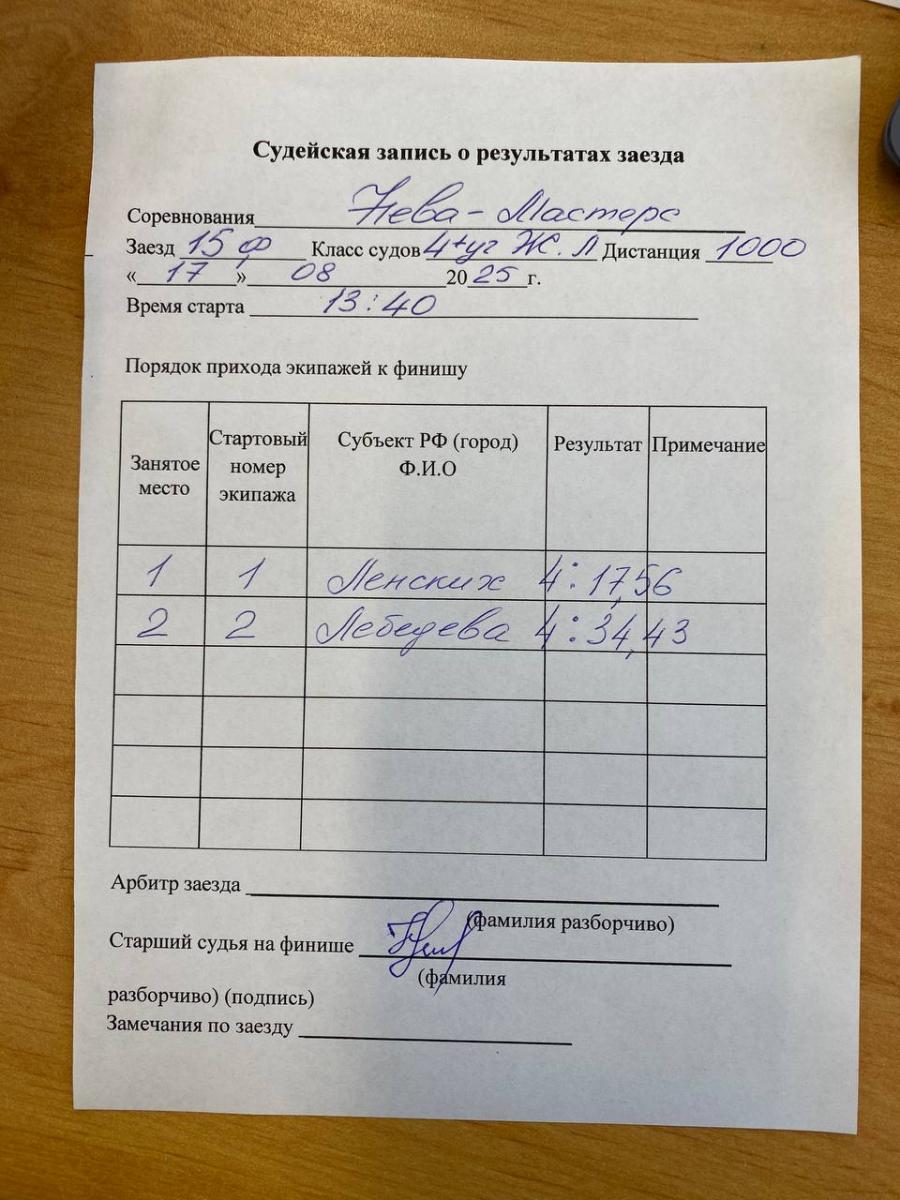 Судейская запись о результатах заезда
Соревнования Нева - Мастерс
Заезд 15 ф Класс судов 4+уг Ж. Л Дистанция 1000
« 17 » 08 2025 г.
Время старта 13:40
Порядок прихода экипажей к финишу
Занятое место Стартовый номер экипажа Субъект РФ (город) Ф.И.О Результат Примечание
1 1 Ленских 4:17,56
2 2 Лебедева 4:34,43
Арбитр заезда
(фамилия разборчиво)
Старший судья на финише
(фамилия
разборчиво) (подпись)
Замечания по заезду